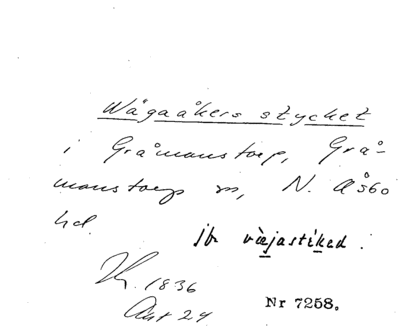 Wågaåkers stycket
i Gråmanstorp, Grå-
manstorps sn, N. Åsbo
hd.
jb. væjastiked.
1836
Akt 24
Nr 7258.